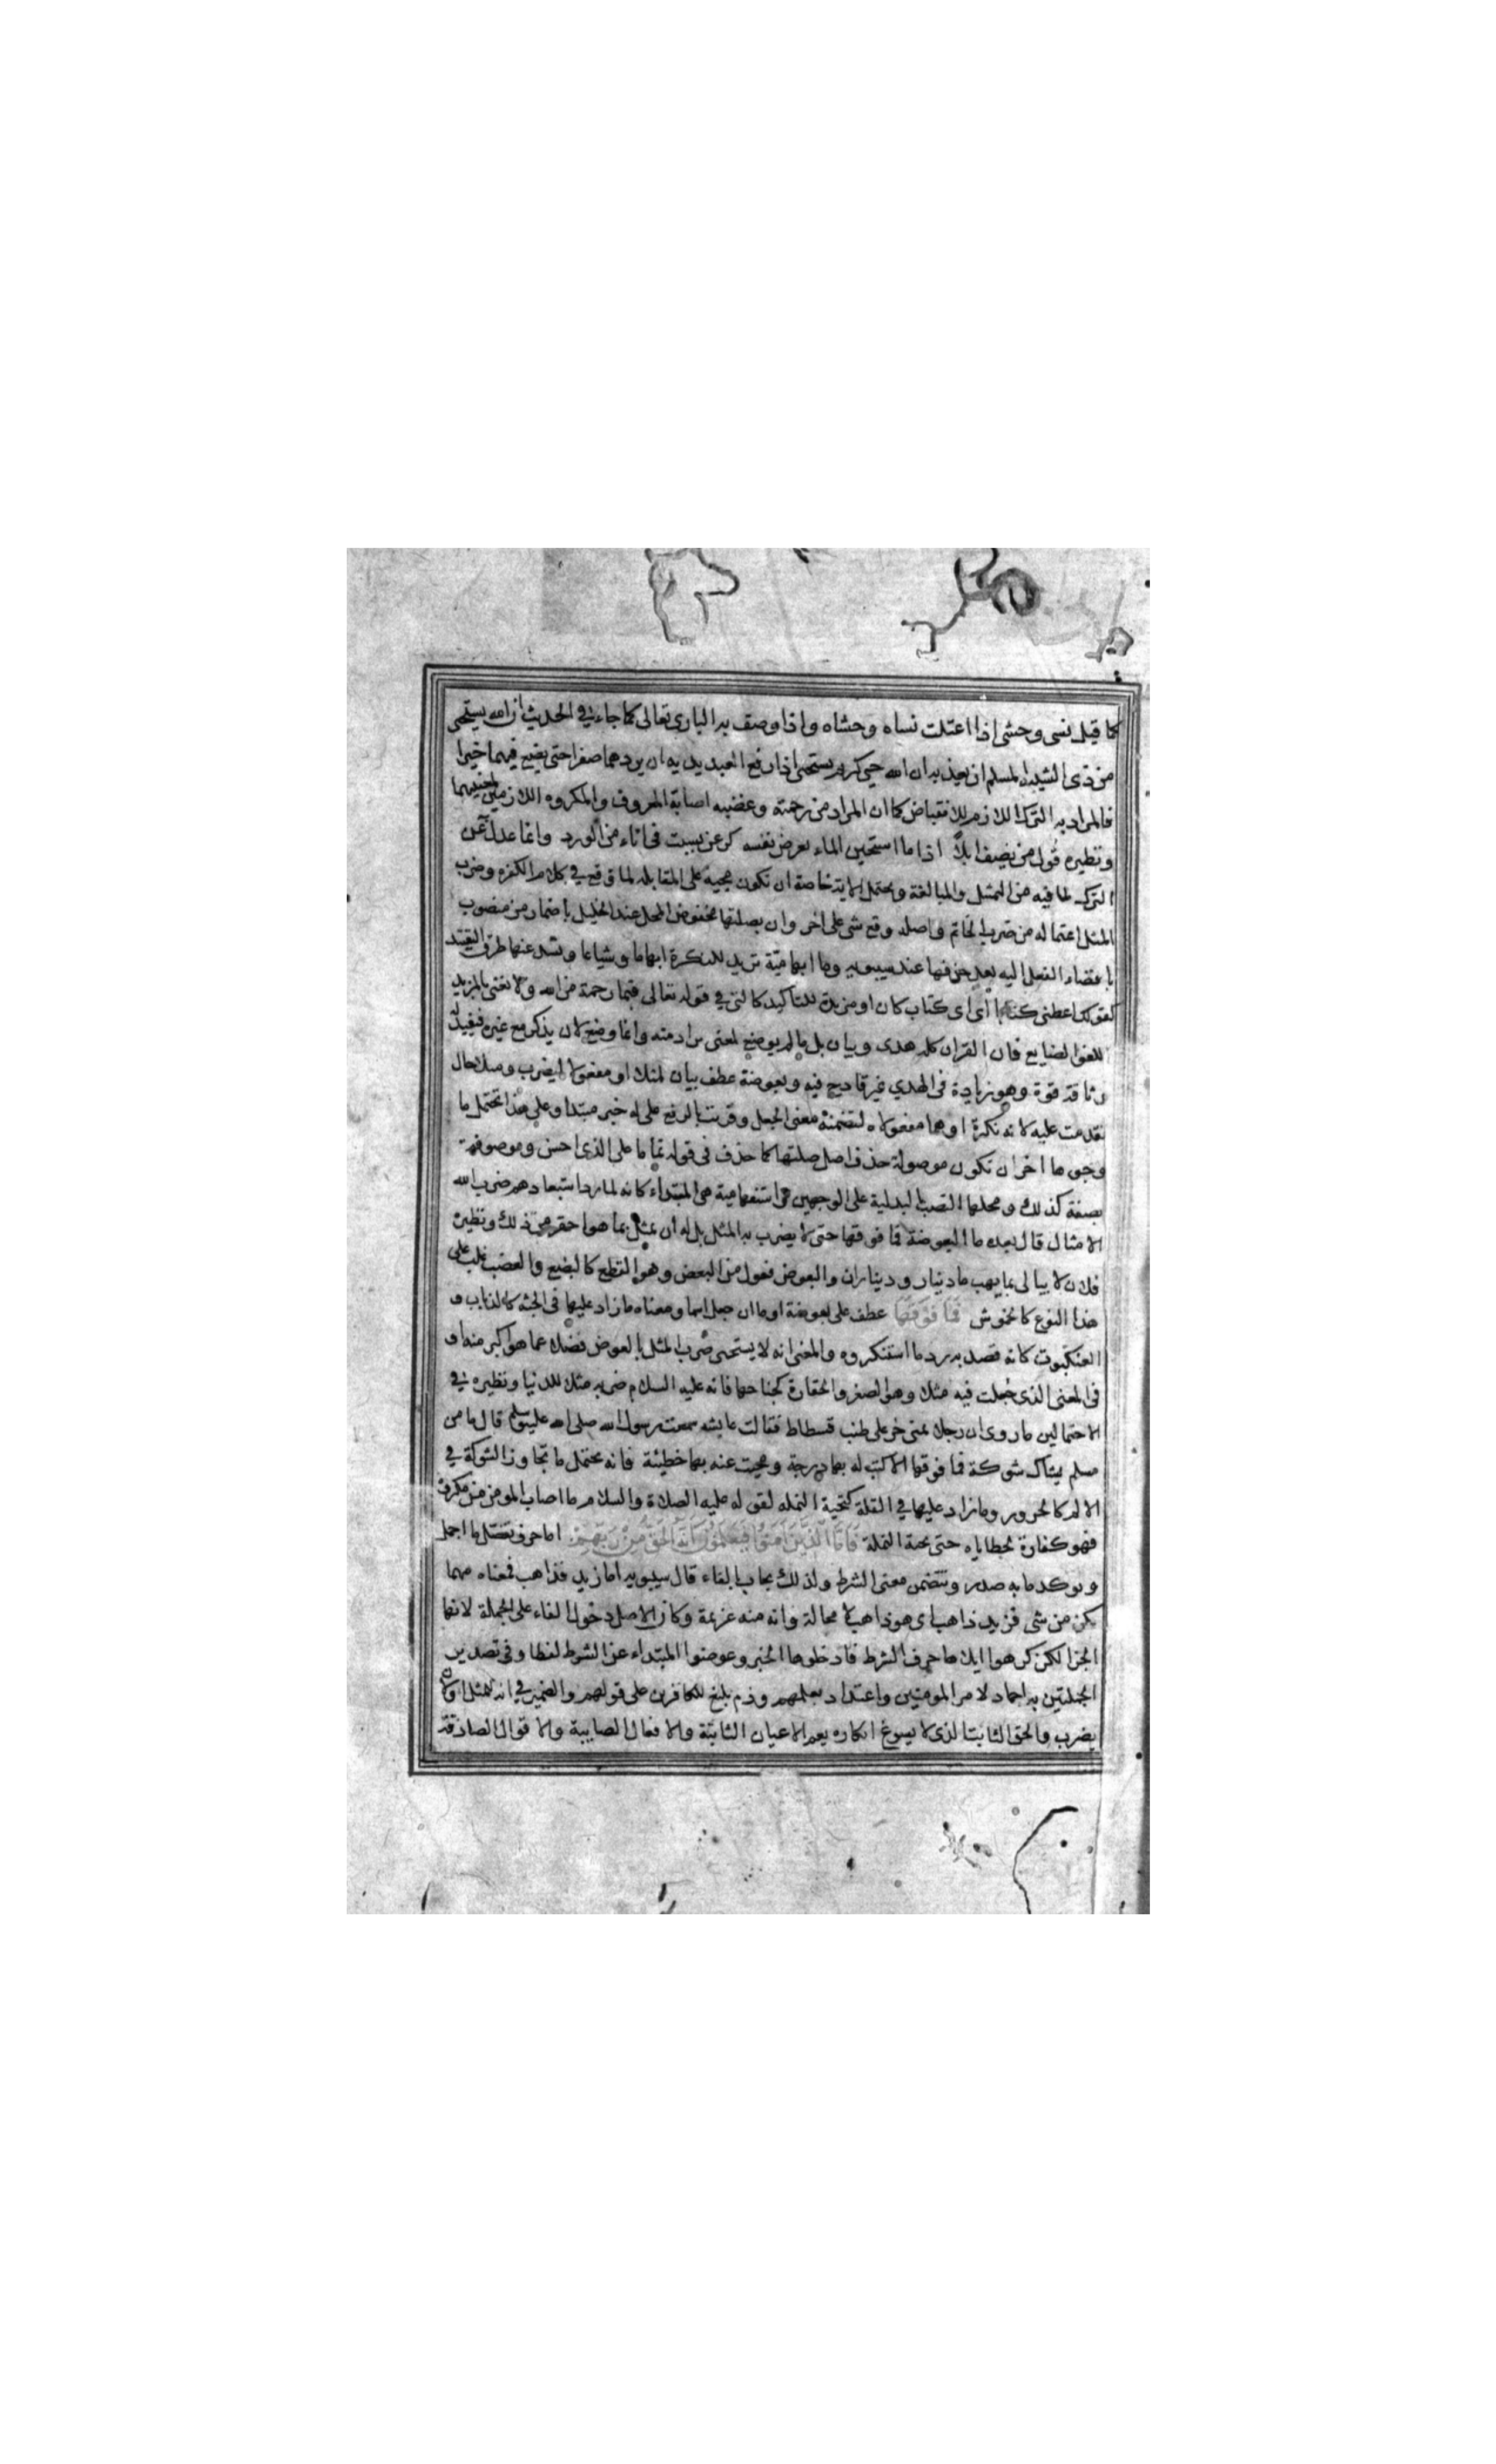 كما قيل نسى وحشى اذا اعتلت نساه وحشاه واذا وصف به البارى تعالى كما جاء في الحديث ان الله يستحى
من ذى الشيبة المسلم ان يعذبه ان الله حي كريم يستحى اذا رفع العبد يديه ان يردهما صفرا حتى يضيع فيهما خيرا
فالمراد به الترك اللازم للانقباض كما ان المراد من رحمته وغضبه اصابة المعروف والمكروه اللازمين لمعنييهما
ونظيره قول من يصف ابلا اذا ما استحين الماء يعرض نفسه كرعن بسبت فى اناء من الورد وانما عدل به عن
الترك لما فيه من التمثيل والمبالغة ويحتمل الاية خاصة ان تكون مجيئه على المقابله لما وقع في كلام الكفره وضرب
المثل اعتماله من ضرب الخاتم واصله وقع شى على اخر وان بصلتها مخفوض المحل عند الخليل باضمار من منصوب
بافضاء الفعل اليه بعد حذفها عند سيبويه وما ابهامية تزيد للنكرة ابهاما وشياعا وتسد عنها طرق التقييد
كقولك اعطنى كتابا اى اى كتاب كان او مزيدة للتاكيد كالتى في قوله تعالى فبما رحمة من الله ولا نعنى بالمزيد
اللغو الضايع فان القران كله هدى وبيان بل ما لم يوضع لمعنى يراد منه وانما وضع لان يذكر مع غيره فيفيد له
وثاقة وقوة وهو زيادة فى الهدي غير قادح فيه وبعوضة عطف بيان لمثلا او مفعول ليضرب ومثلا حال
تقدمت عليه لانه نكرة او هما مفعولاه لتضمنه معنى الجعل وقرئت بالرفع على انه خبر مبتدا وعلى هذا تحتمل ما
وجوها اخر ان تكون موصولة حذف اصل صلتها كما حذف فى قوله تماما على الذى احسن وموصوفة
بصفة كذلك ومحلها النصب بالبدلية على الوجهين او استفهامية هى المبتداء كانه لما رد استبعادهم ضرب الله
الامثال قال بعده ما البعوضة فما فوقها حتى لا يضرب به المثل بل له ان يمثل بما هو احقر من ذلك ونظيره
فلان لا يبالى بما يهب ما دينار ودينااران والبعوض فعول من البعض وهو القطع كالبضع والعضب غلب على
هذا النوع كالخموش فما فوقها عطف على بعوضة او ما ان جعل اسما ومعناه ما زاد عليها فى الجثه كالذباب و
العنكبوت كانه قصد به رد ما استنكروه والمعنى انه لا يستحى ضرب المثل بالبعوض فضلا عما هو اكبر منه او
فى المعنى الذى جعلت فيه مثلا وهو الصغر والحقارة كجناحها فانه عليه السلام ضربه مثلا للدنيا ونظيره في
الاحتمالين ما روى ان رجلا بمنى خر على طنب فسطاط فقالت عايشه سمعت رسول الله صلى الله عليه وسلم قال ما من
مسلم يشاك شوكة فما فوقها الا كتب له بها درجة ومحيت عنه بها خطيئة فانه يحتمل ما تجاوز الشوكة في
الالم كالخرور وما زاد عليها في القلة كنخبة النمله لقوله عليه الصلاة والسلام ما اصاب المومن من مكروه
فهو كفارة لخطاياه حتى نخبة النملة فَاَمَّا الَّذِينَ اٰمَنُوا فَيَعْلَمُونَ اَنَّهُ الْحَقُّ مِنْ رَبِّهِمْ اما حرف تفصل ما اجمل
وتوكد ما به صدر وتتضمن معنى الشرط ولذلك يجاب بالفاء قال سيبويه اما زيد فذاهب فمعناه مهما
يكن من شى فزيد ذاهب اى هو ذاهب لا محالة وانه منه عزيمة وكان الاصل دخول الفاء على الجملة لانها
الجزا لكن كرهوا ايلاها حرف الشرط فادخلوها الخبر وعوضوا المبتداء عن الشرط لفظا وفى تصدير
الجملتين به احماد لامر المومنين واعتداد بعلمهم وذم بليغ للكافرين على قولهم والضمير في انه للمثل او لان
يضرب والحق الثابت الذى لا يسوغ انكاره يعم الاعيان الثابتة والافعال الصايبة والاقوال الصادقة